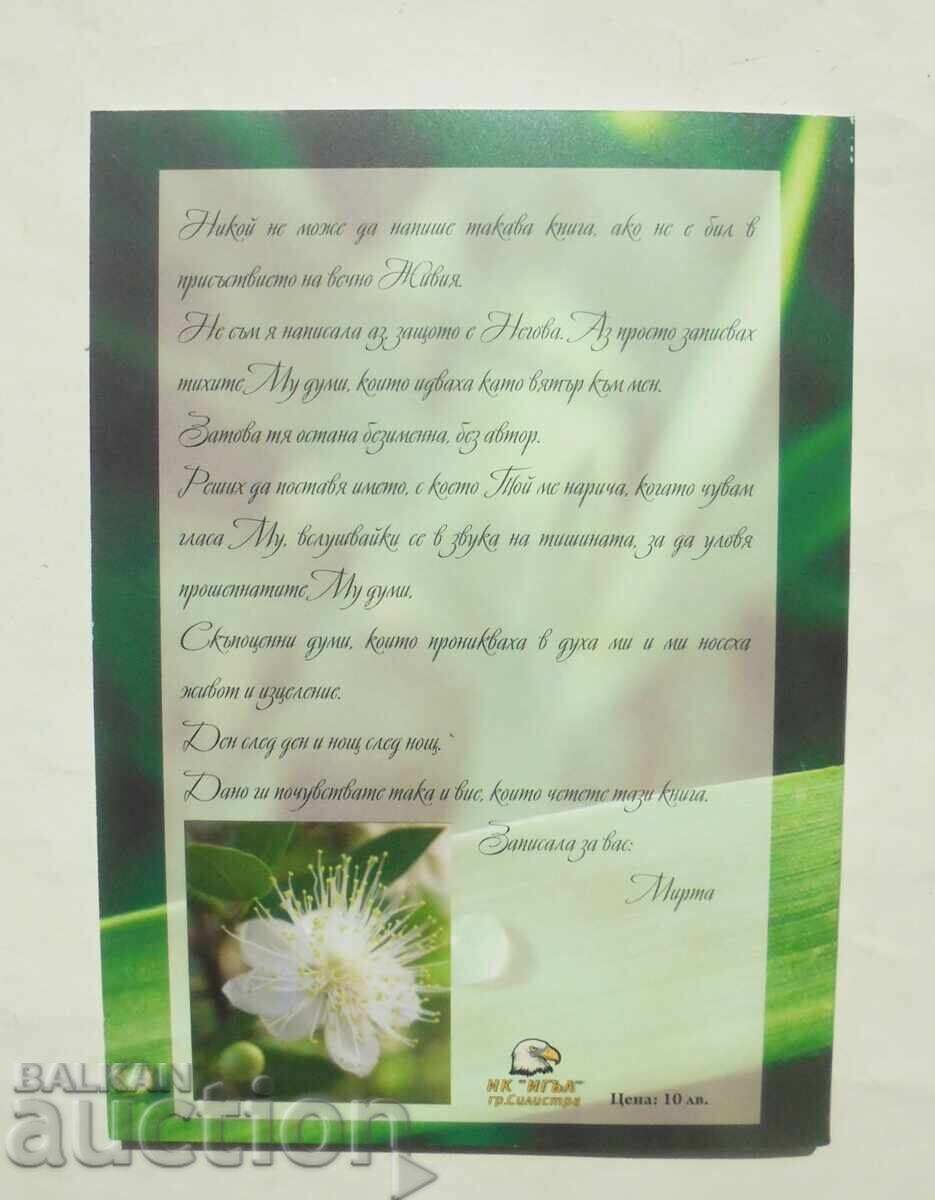 Никой не може да напише такава книга, ако не е бил в
присъствието на вечно Живия.
Не съм я написала аз, защото е Негова. Аз просто записвах
тихите Му думи, които идваха като вятър към мен.
Затова тя остана безименна, без автор.
Реших да поставя името, с което Той ме нарича, когато чувам
гласа Му, вслушвайки се в звука на тишината, за да уловя
прошепнатите Му думи,
Скъпоценни думи, които проникваха в духа ми и ми носеха
живот и изцеление.
Ден след ден и нощ след нощ.`
Дано ги почувствате така и вие, които четете тази книга.
Записала за вас:
Мирта
ИК "ИГЪЛ"
гр.Силистра
Цена: 10 лв.
BALKAN
auction